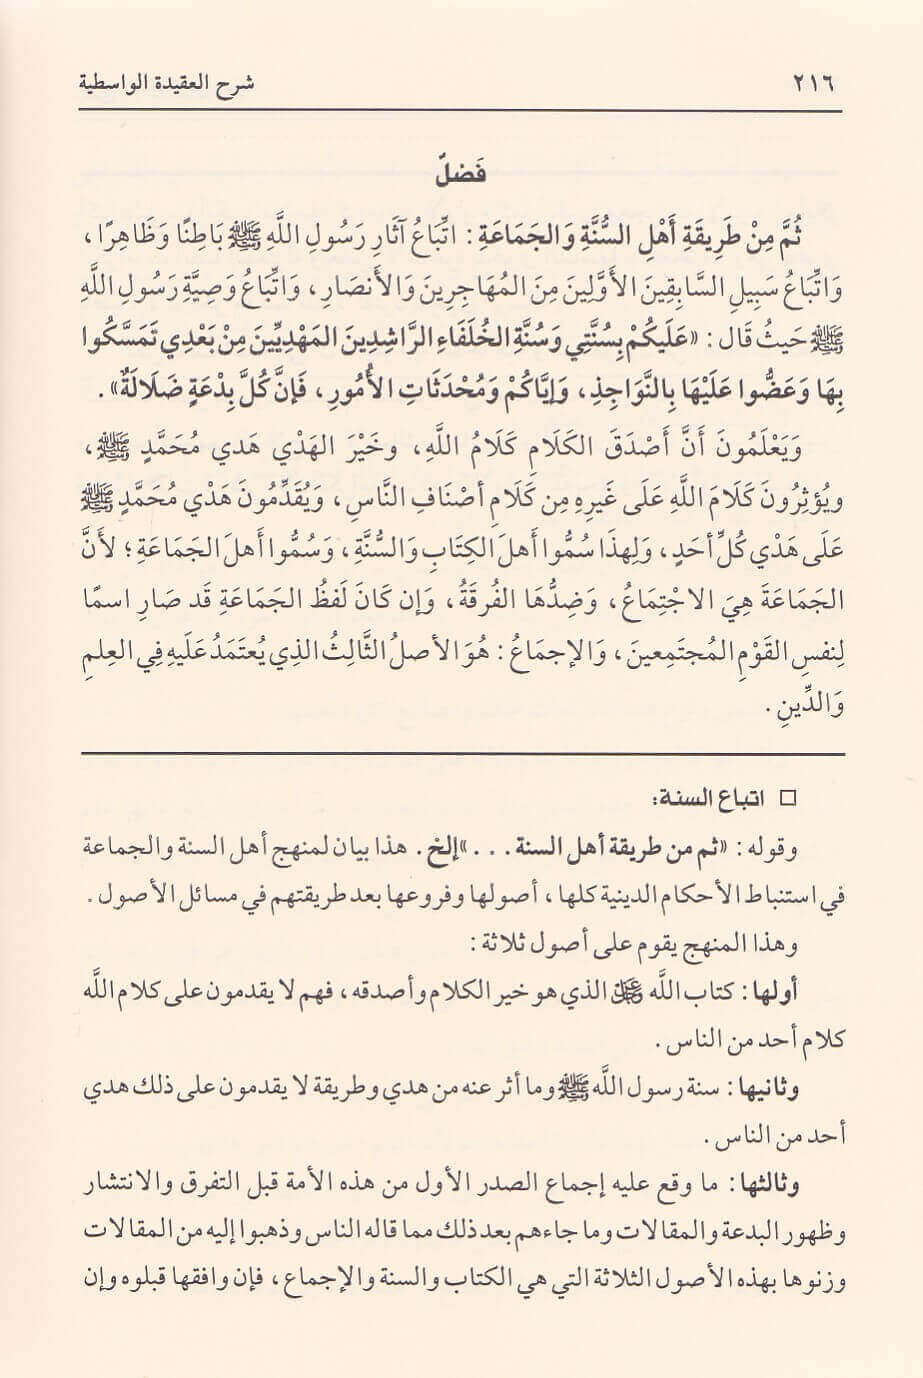 ٢١٦ شرح العقيدة الواسطية
فَصْلٌ
ثُمَّ مِنْ طَرِيقَةِ أَهْلِ السُّنَّةِ وَالجَمَاعَةِ : اتِّبَاعُ آثَارِ رَسُولِ اللَّهِ ﷺ بَاطِنًا وَظَاهِرًا ،
وَاتِّبَاعُ سَبِيلِ السَّابِقِينَ الأَوَّلِينَ مِنَ المُهَاجِرِينَ وَالأَنصَارِ ، وَاتِّبَاعُ وَصِيَّةِ رَسُولِ اللَّهِ
ﷺ حَيثُ قَال : «عَلَيكُمْ بِسُنَّتِي وَسُنَّةِ الخُلَفَاءِ الرَّاشِدِينَ المَهْدِيِّينَ مِنْ بَعْدِي تَمَسَّكُوا
بِهَا وَعَضُّوا عَلَيْهَا بِالنَّوَاجِذِ ، وَإيَّاكُمْ وَمُحْدَثَاتِ الأُمُورِ ، فَإِنَّ كُلَّ بِدْعَةٍ ضَلَالَةٌ» .
وَيَعْلَمُونَ أَنَّ أَصْدَقَ الكَلَامِ كَلَامُ اللَّهِ ، وخَيْرَ الهَدْيِ هَدي مُحَمَّدٍ ﷺ ،
ويُؤثِرُونَ كَلَامَ اللَّهِ عَلَى غَيرِهِ مِن كَلَامِ أصْنَافِ النَّاسِ ، وَيُقَدِّمُونَ هَدْيِ مُحَمَّدٍ ﷺ
عَلَى هَدْيِ كُلِّ أحَدٍ ، وَلِهذَا سُمُّوا أهلَ الكِتَابِ وَالسُّنَّةِ ، وَسُمُّوا أهلَ الجَمَاعَةِ ؛ لأنَّ
الجَمَاعَةَ هِيَ الاجْتِمَاعُ ، وَضِدُّهَا الفُرقَةُ ، وَإِن كَانَ لَفظُ الجَمَاعَةِ قَد صَارِ اسمًا
لِنفسِ القَوْمِ المُجتَمِعينَ ، وَالإجمَاعُ : هُوَ الأصلُ الثَّالِثُ الذِي يُعتَمَدُ عَلَيهِ فِي العِلمِ
وَالدِّينِ .
□ اتباع السنة:
وقوله : «ثم من طريقة أهل السنة . . .» إلخ . هذا بيان لمنهج أهل السنة والجماعة
في استنباط الأحكام الدينية كلها ، أصولها وفروعها بعد طريقتهم في مسائل الأصول .
وهذا المنهج يقوم على أصول ثلاثة :
أولها : كتاب اللَّه ﷿ الذي هو خير الكلام وأصدقه ، فهم لا يقدمون على كلام اللَّه
كلام أحد من الناس .
وثانيها : سنة رسول اللَّه ﷺ وما أثر عنه من هدي وطريقة لا يقدمون على ذلك هدي
أحد من الناس .
وثالثها : ما وقع عليه إجماع الصدر الأول من هذه الأمة قبل التفرق والانتشار
وظهور البدعة والمقالات وما جاءهم بعد ذلك مما قاله الناس وذهبوا إليه من المقالات
وزنوها بهذه الأصول الثلاثة التي هي الكتاب والسنة والإجماع ، فإن وافقها قبلوه وإن